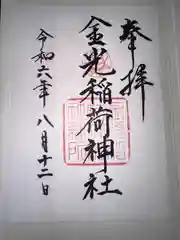 奉拝
金光稲荷神社
令和六年八月十二日